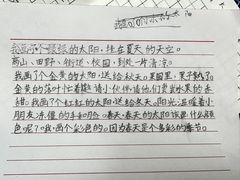 我画了个绿绿的太阳，挂在夏天的天空。
高山、田野、街道、校园，到处一片清凉。
我画了个金黄的太阳，送给秋天。果园里，果子熟了。
金黄的落叶忙着邀请小伙伴，请他们尝尝水果的香
甜。我画了个红红的太阳，送给冬天。阳光温暖着小
朋友冻僵的手和脸。春天，春天的太阳该画什么颜
色呢？哦，画个彩色的。因为春天是个多彩的季节。